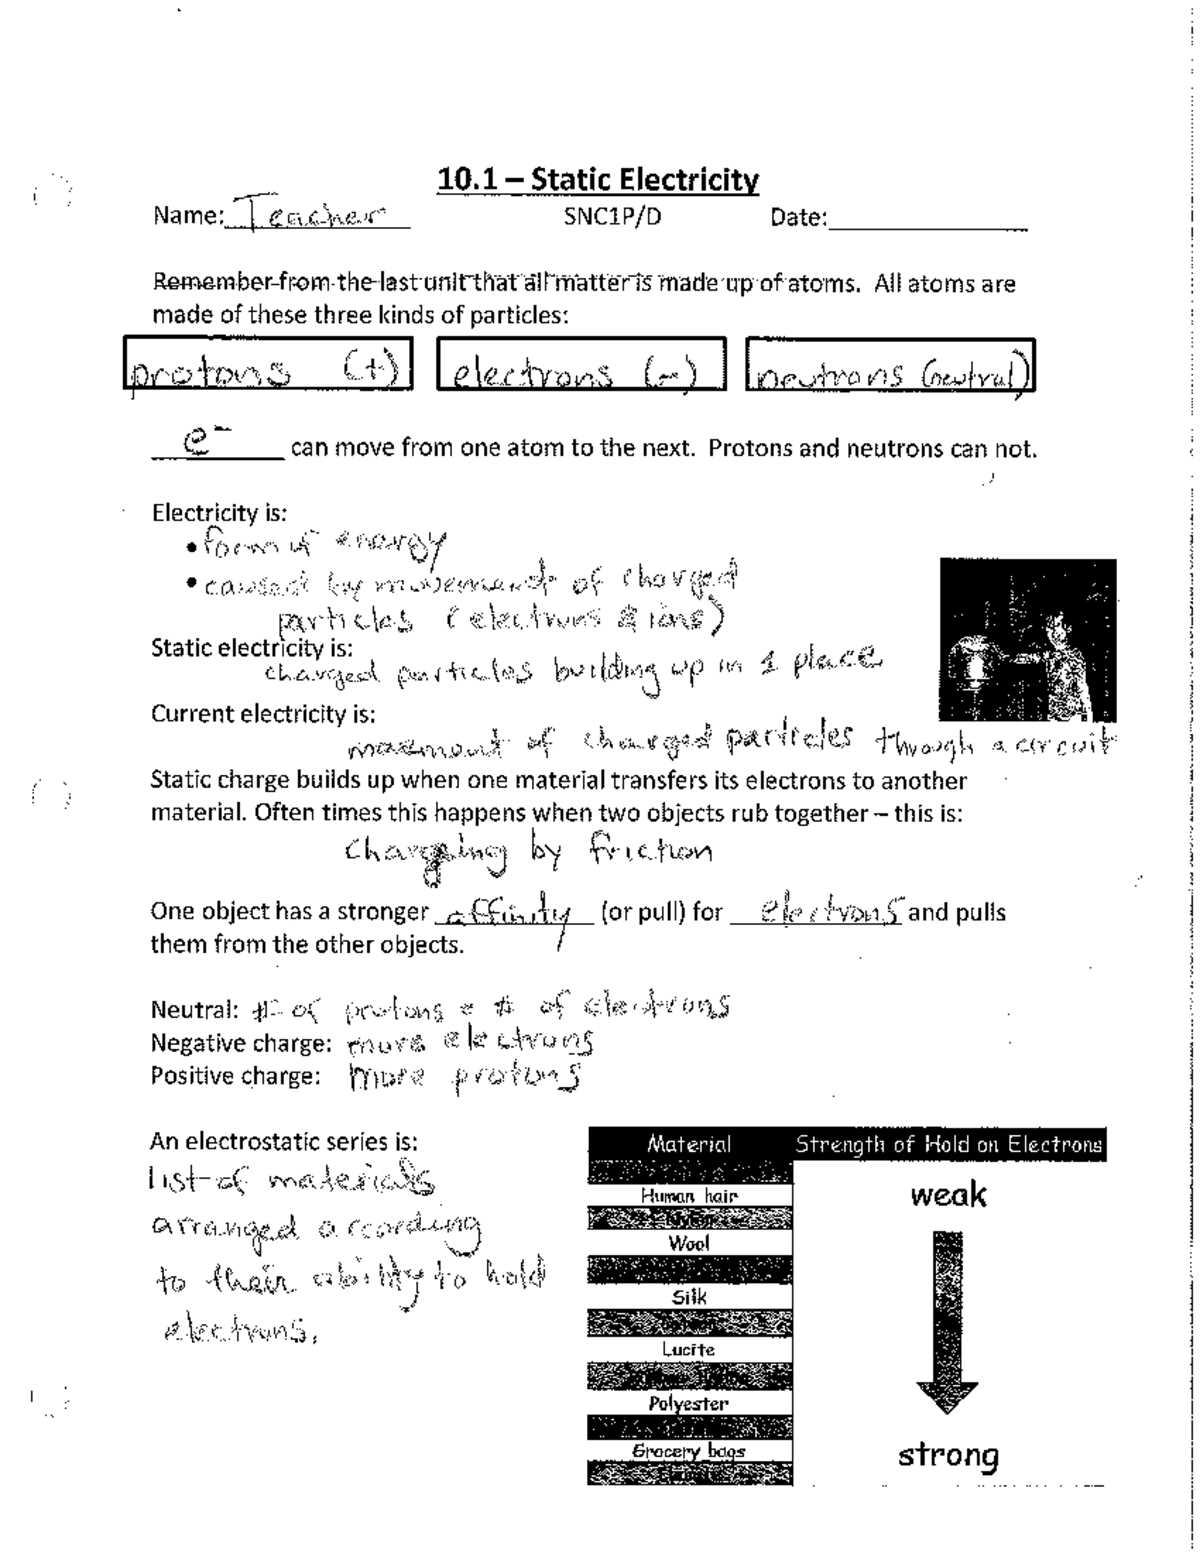 10.1 – Static Electricity
Name: Teacher SNC1P/D Date:
Remember from the last unit that all matter is made up of atoms. All atoms are
made of these three kinds of particles:
protons (+) electrons (-) neutrons (neutral)
e⁻ can move from one atom to the next. Protons and neutrons can not.
Electricity is:
• form of energy
• caused by movement of charged
particles (electrons & ions)
Static electricity is:
charged particles building up in 1 place
Current electricity is:
movement of charged particles through a circuit
Static charge builds up when one material transfers its electrons to another
material. Often times this happens when two objects rub together – this is:
charging by friction
One object has a stronger affinity (or pull) for electrons and pulls
them from the other objects.
Neutral: # of protons = # of electrons
Negative charge: more electrons
Positive charge: more protons
An electrostatic series is:
list of materials
arranged according
to their ability to hold
electrons.
Material Strength of Hold on Electrons
Human hair
weak
Wool
Silk
Lucite
Polyester
Grocery bags
strong